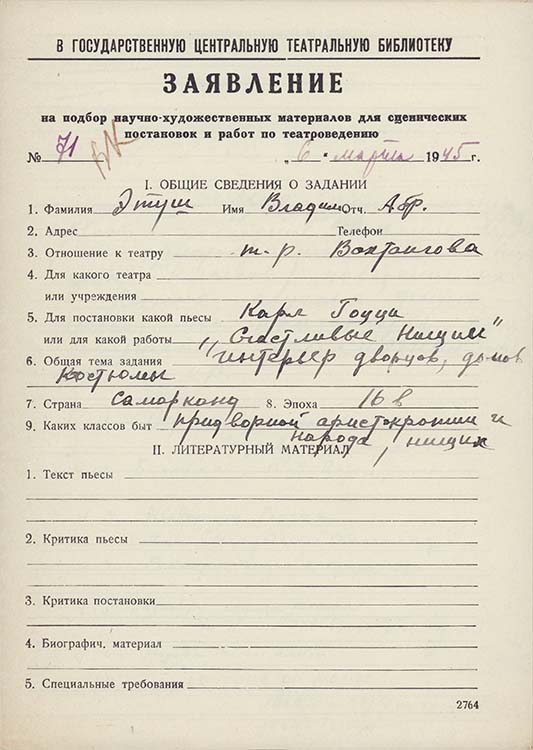 В ГОСУДАРСТВЕННУЮ ЦЕНТРАЛЬНУЮ ТЕАТРАЛЬНУЮ БИБЛИОТЕКУ
ЗАЯВЛЕНИЕ
на подбор научно-художественных материалов для сценических
постановок и работ по театроведению
№ 71 „6“ марта 1945 г.
I. ОБЩИЕ СВЕДЕНИЯ О ЗАДАНИИ
1. Фамилия Этуш Имя Владим Отч. Абр.
2. Адрес Телефон
3. Отношение к театру т-р. Вахтангова
4. Для какого театра
или учреждения
5. Для постановки какой пьесы Карло Гоцци
или для какой работы „Счастливые Нищие“
6. Общая тема задания интерьер дворцов, домов
костюмы
7. Страна Самарканд 8. Эпоха 16 в
9. Каких классов быт придворной аристократии и
народа, нищих
II. ЛИТЕРАТУРНЫЙ МАТЕРИАЛ
1. Текст пьесы
2. Критика пьесы
3. Критика постановки
4. Биографич. материал
5. Специальные требования
2764